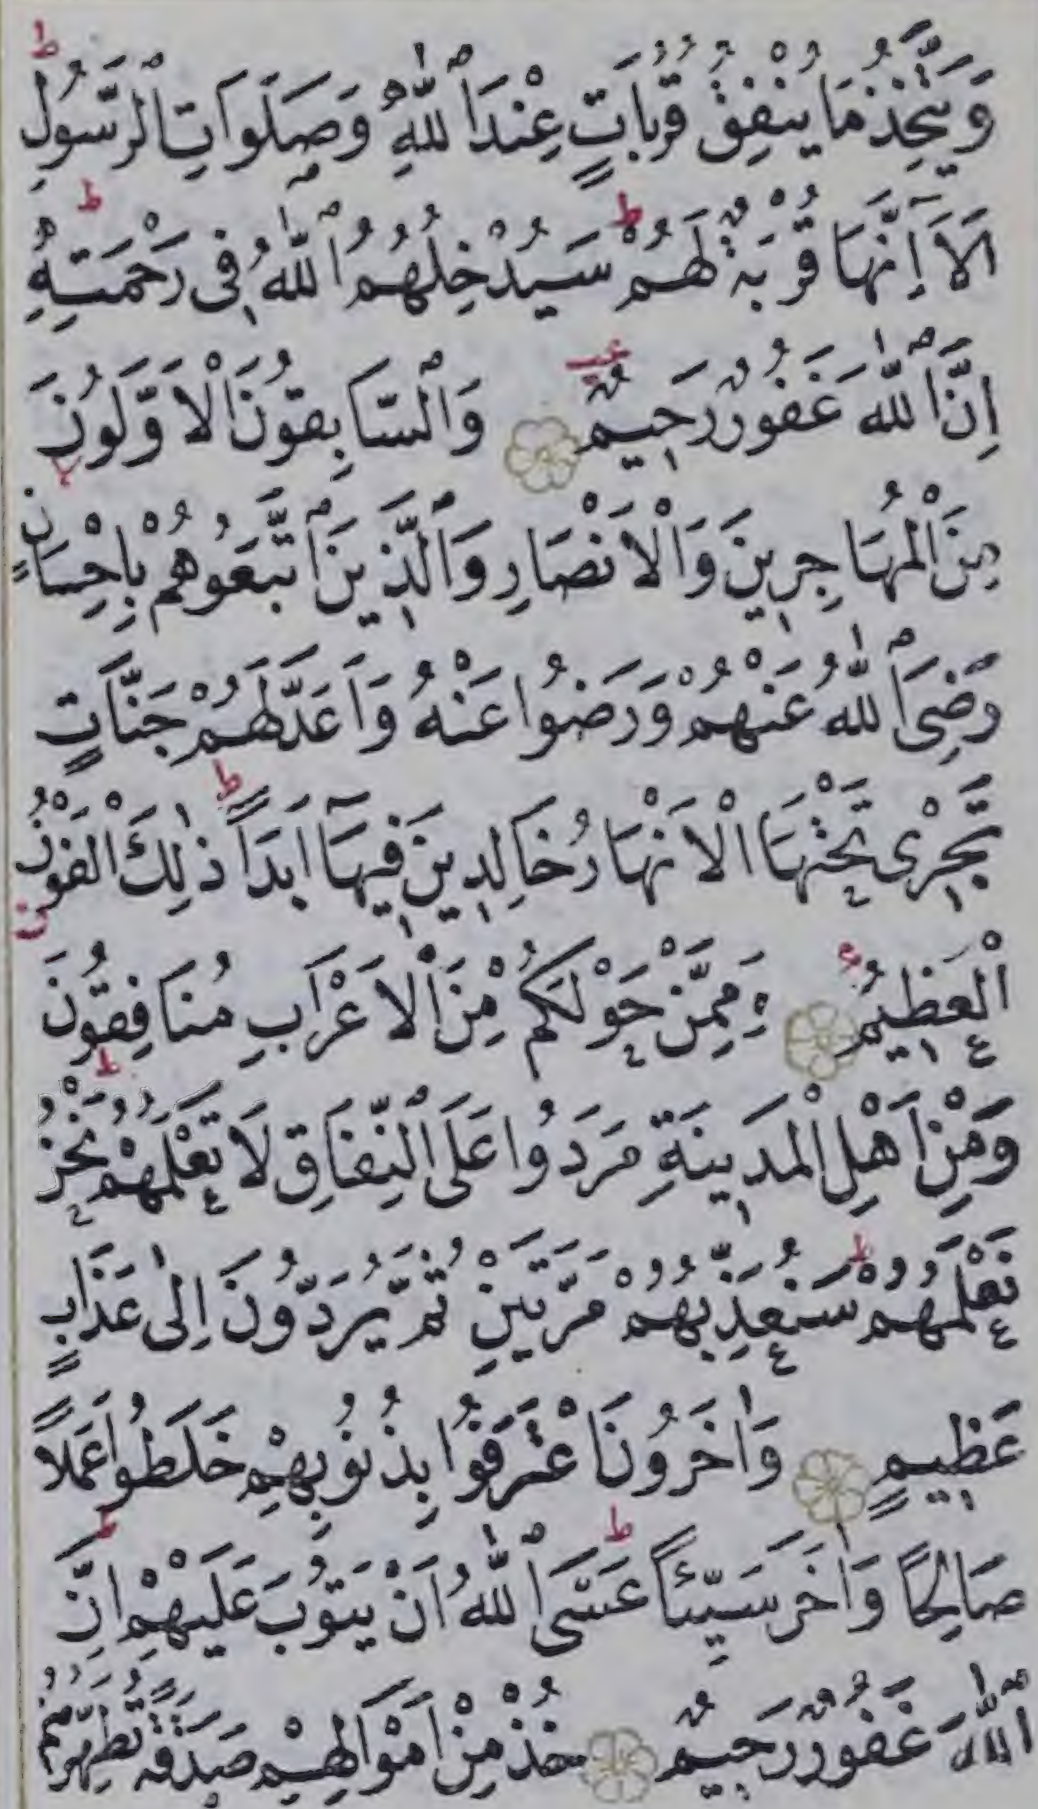 وَيَتَّخِذُ مَا يُنْفِقُ قُرُبَاتٍ عِنْدَ ٱللّٰهِ وَصَلَوَاتِ ٱلرَّسُولِ ط
اَلَآ اِنَّهَا قُرْبَةٌ لَهُمْ ط سَيُدْخِلُهُمُ ٱللّٰهُ فِى رَحْمَتِهِ ط
اِنَّ ٱللّٰهَ غَفُورٌ رَحِيمٌ وَٱلسَّابِقُونَ ٱلْاَوَّلُونَ
مِنَ ٱلْمُهَاجِرِينَ وَٱلْاَنْصَارِ وَٱلَّذِينَ ٱتَّبَعُوهُمْ بِاِحْسَانٍ
رَضِىَ ٱللّٰهُ عَنْهُمْ وَرَضُوا عَنْهُ وَاَعَدَّ لَهُمْ جَنَّاتٍ
تَجْرِى تَحْتَهَا ٱلْاَنْهَارُ خَالِدِينَ فِيهَآ اَبَدًا ط ذٰلِكَ ٱلْفَوْزُ
ٱلْعَظِيمُ وَمِمَّنْ حَوْلَكُمْ مِنَ ٱلْاَعْرَابِ مُنَافِقُونَ
وَمِنْ اَهْلِ ٱلْمَدِينَةِ مَرَدُوا عَلَى ٱلنِّفَاقِ لَا تَعْلَمُهُمْ ط نَحْنُ
نَعْلَمُهُمْ ط سَنُعَذِّبُهُمْ مَرَّتَيْنِ ثُمَّ يُرَدُّونَ اِلٰى عَذَابٍ
عَظِيمٍ وَاٰخَرُونَ ٱعْتَرَفُوا بِذُنُوبِهِمْ خَلَطُوا عَمَلًا
صَالِحًا وَاٰخَرَ سَيِّئًا ط عَسَى ٱللّٰهُ اَنْ يَتُوبَ عَلَيْهِمْ ط اِنَّ
ٱللّٰهَ غَفُورٌ رَحِيمٌ خُذْ مِنْ اَمْوَالِهِمْ صَدَقَةً تُطَهِّرُهُمْ